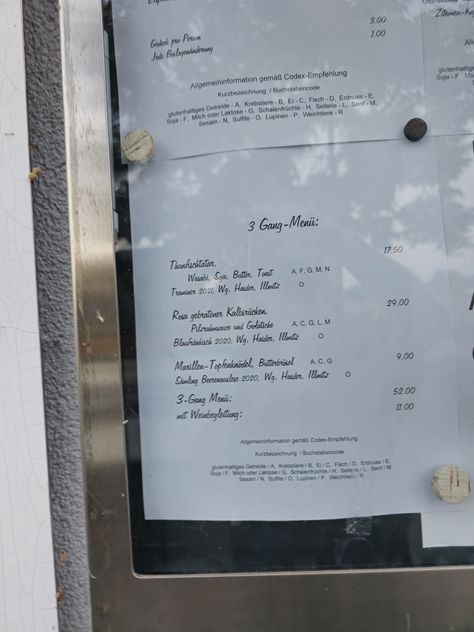 3.00
Gedeck pro Person 1.00
Jede Beilagenänderung
Allgemeininformation gemäß Codex-Empfehlung
Kurzbezeichnung / Buchstabencode
glutenhaltiges Getreide - A, Krebstiere - B, Ei - C, Fisch - D, Erdnuss - E,
Soja - F, Milch oder Laktose - G, Schalenfrüchte - H, Sellerie - L, Senf - M,
Sesam - N, Sulfite - O, Lupinen - P, Weichtiere - R
3 Gang-Menü:
17.50
Thunfischtatar,
Wasabi, Soja, Butter, Toast A, F, G, M, N
Traminer 2021, Wg. Haider, Illmitz O
Rosa gebratener Kalbsrücken, 29.00
Pilzrahmsauce und A, C, G, L, M
Blaufränkisch 2020, Wg. Haider, Illmitz O
Marillen-Topfenknödel, Butterbrösel A, C, G 9,00
Sämling Beerenauslese 2020, Wg. Haider, Illmitz O
3-Gang Menü: 52.00
mit Weinbegleitung: 11.00
Allgemeininformation gemäß Codex-Empfehlung
Kurzbezeichnung / Buchstabencode
glutenhaltiges Getreide / A, Krebstiere / B, Ei / C, Fisch / D, Erdnuss / E,
Soja / F, Milch oder Laktose / G, Schalenfrüchte / H, Sellerie / L, Senf / M,
Sesam / N, Sulfite / O, Lupinen / P, Weichtiere / R